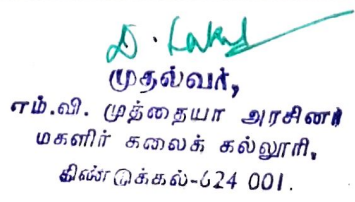 D. Lak
முதல்வர்,
எம்.வி. முத்தையா அரசினர்
மகளிர் கலைக் கல்லூரி,
திண்டுக்கல்-624 001.